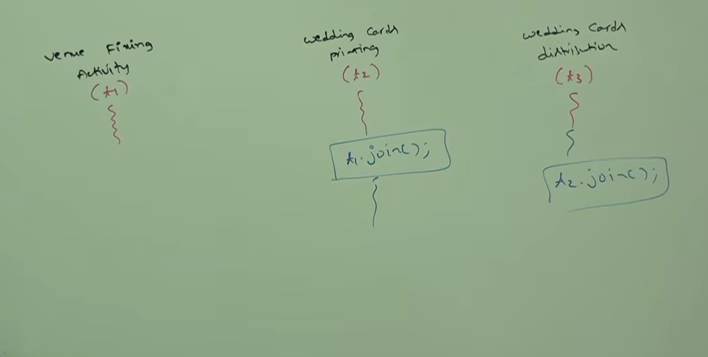 venue Fixing
Activity
(t1)
wedding Cards
printing
(t2)
t1.join();
wedding Cards
distribution
(t3)
t2.join();